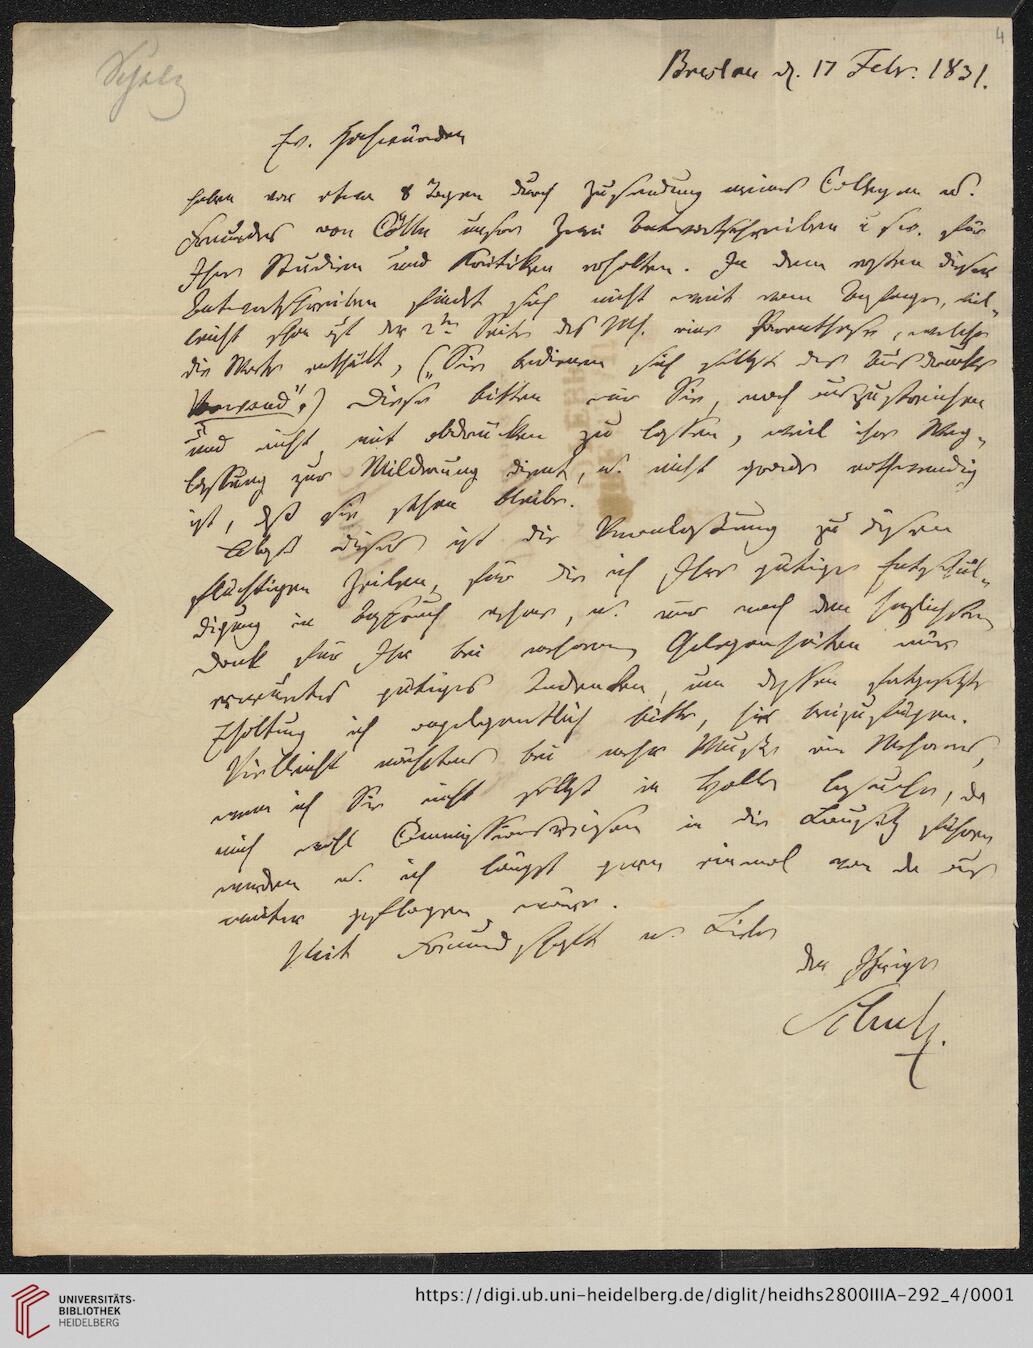 4
Schulz
Breslau d. 17 Febr. 1831.
Ew. Hochwürden
haben vor etwa 8 Tagen durch Zusendung meines Collegen u.
Freundes von Cölln unsre zwei Antwortschreiben für
Ihre Studien und Kritiken erhalten. In dem ersten dieser
Antwortschreiben findet sich nicht weit vom Anfange, viel-
leicht schon auf der 2ten Seite des Ms. eine Parenthese, welche
die Worte enthält, („Sie bedienen sich selbst des Ausdrucks
Vorwand"!) Diese bitten wir Sie, noch auszustreichen
und nicht mit abdrucken zu lassen, weil ihre Weg-
lassung zur Milderung dient, u. nicht gerade nothwendig
ist, daß sie stehen bleibe.
Bloß dieses ist die Veranlassung zu diesen
flüchtigen Zeilen, für die ich Ihre gütige Entschul-
digung in Anspruch nehme, u. nur noch den herzlichsten
Dank für Ihr bei mehreren Gelegenheiten mir
gütiges Andenken, um dessen fortgesetzte
Erhaltung ich angelegentlich bitte, hier beizufügen.
Vielleicht nächstens bei mehr Muße ein Mehreres,
wenn ich Sie nicht selbst in Halle besuche, da
mich wohl Commissionsreisen in die Lausitz führen
werden u. ich längst gern einmal von da aus
weiter geflogen wäre.
Mit Freundschaft u. Liebe
der Ihrige
Schulz.
UNIVERSITÄTS-
BIBLIOTHEK
HEIDELBERG
https://digi.ub.uni-heidelberg.de/diglit/heidhs2800IIIA-292_4/0001